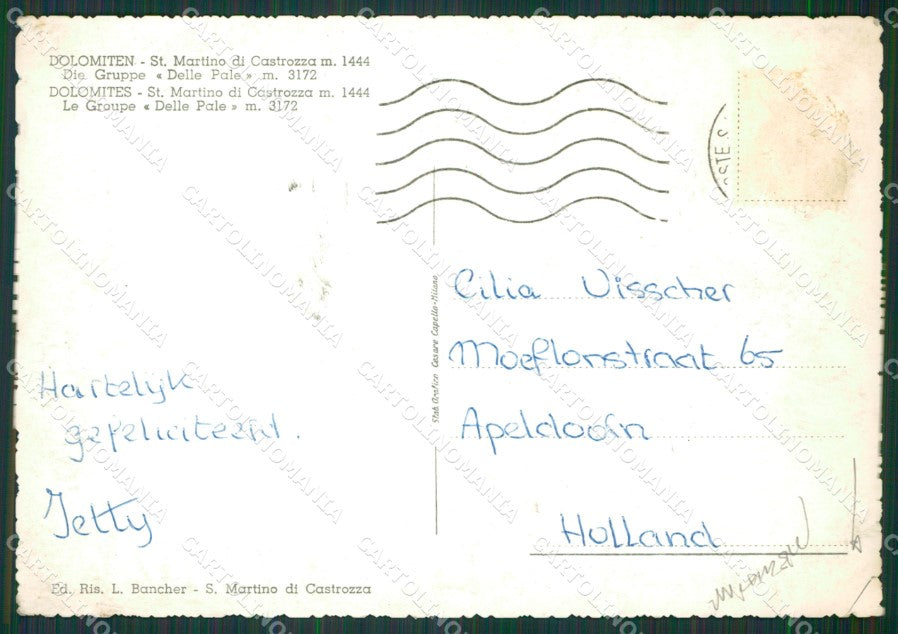 DOLOMITEN - St. Martino di Castrozza m. 1444
Die Gruppe « Delle Pale » m. 3172
DOLOMITES - St. Martino di Castrozza m. 1444
Le Groupe « Delle Pale » m. 3172
Hartelijk
gefeliciteerd.
Jetty
Ed. Ris. L. Bancher - S. Martino di Castrozza
Cesare Capello-Milano
Cilia Visscher
Moeflonstraat 65
Apeldoorn
Holland
CARTOLINOMANIA